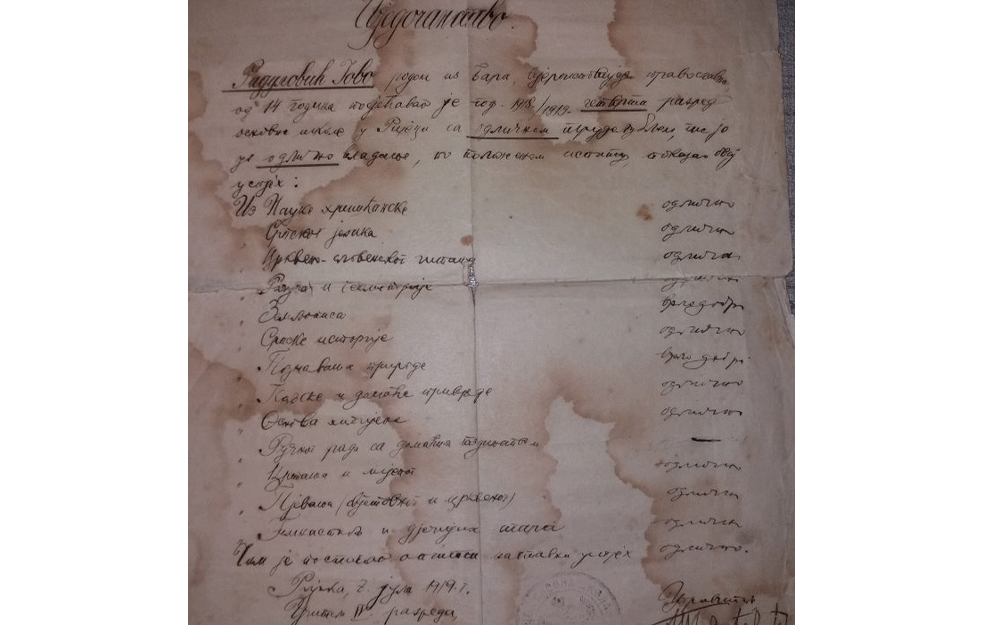 Свједочанство.
Радуловић Јово родом из Бара,
од 14 година похађао је год. 1918/1919. четврти разред
основне школе у Ријеци са одличном
уз одлично владање, по положеном испиту, показао овај
успјех:
Из Науке хришћанске одлично
" Српског језика одлично
" Црквено-словенског читања одлично
" Рачуна и геометрије
" Земљописа врло добар
" Српске историје одлично
" Познавања природе врло добар
" и домаће привреде одлично
" Основа хигијене одлично
" Ручног рада са домаћим —
" Цртања и одлично
" Пјевања (свјетовног и црквеног) одлично
" Гимнастике и дјечијих одлично
Чим је постигао наставни успјех одлично.
Ријека, 2. јула 1919. г.
Учитељ IV. разреда, Управитељ